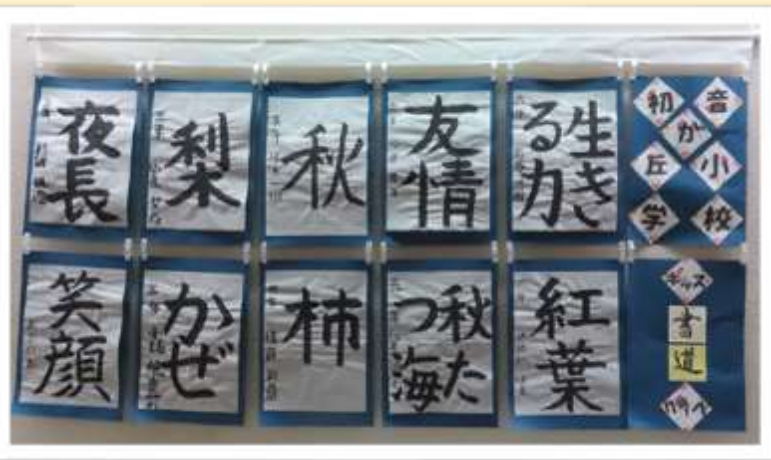 初音
が
丘小
学校
生き
る力
友情
秋
梨
夜長
キッズ
書道
クラブ
紅葉
秋た
つ海
柿
かぜ
笑顔